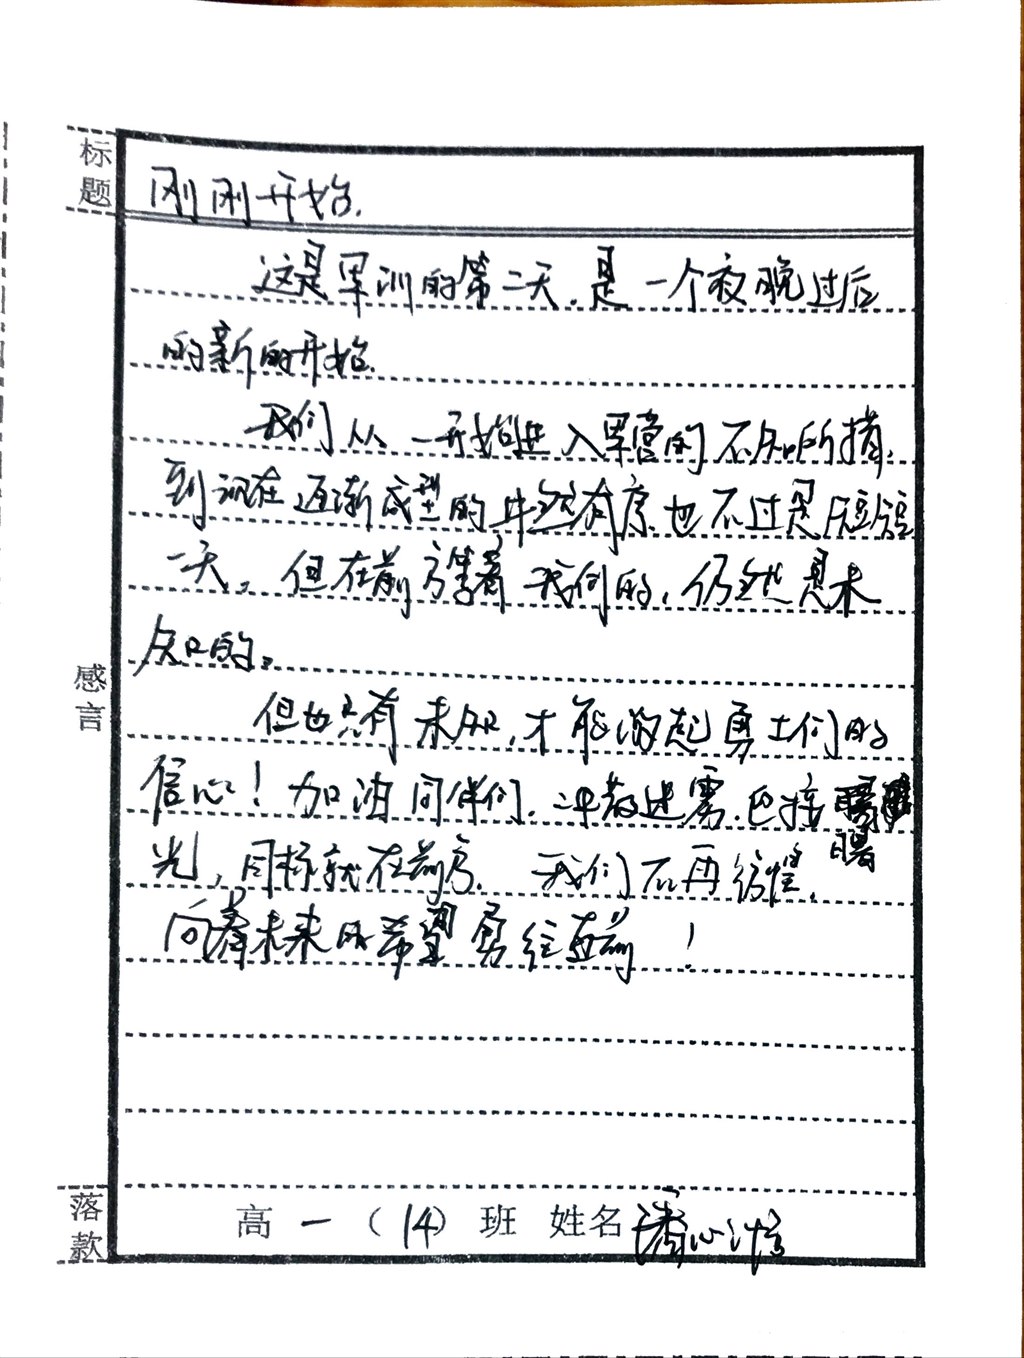 标题
刚刚开始.
这是军训的第二天.是一个夜晚过后
的新的开始.
我们从一开始进入军营的不知所措,
到现在逐渐成型的井然有序.也不过是短短
一天。但在前方等着我们的,仍然是未
知的。
感言
但也只有未知,才能激起勇士们的
信心!加油同伴们.冲散迷雾.迎接
曙
光,目标就在前方.我们不再彷惶.
向着未来的希望勇往直前!
落款
高一(14)班 姓名